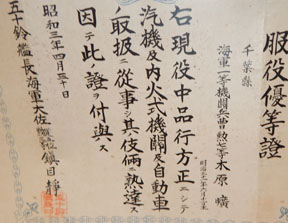 服役優等證
千葉縣
海軍一等機關兵曹勲七等木原 曠
明治三十二年六月十六日
右現役中品行方正ニシテ
汽機及内火式機關及自動車
ノ取扱ニ從事シ其伎倆ニ熟達ス
因テ此ノ證ヲ付與ス
昭和三年四月三十日
五十鈴艦長海軍大佐 鎮目靜